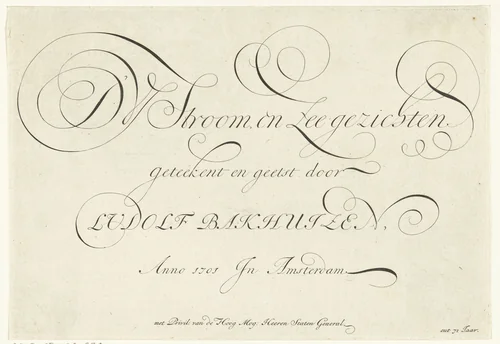 D'Y Stroom, en Zee gezichten
geteekent en geetst door
LUDOLF BAKHUIZEN,
Anno 1701 In Amsterdam
met Privil van de Hoog Mog: Heeren Staten Generael
aut 71 Jaar.